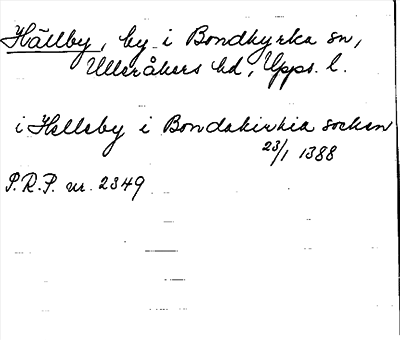 Hällby, by i Bondkyrka sn,
Ulleråkers hd, Upps. l.
i Hellsby i Bondakirkia socken
23/1 1388
P.R.P. nr. 2349